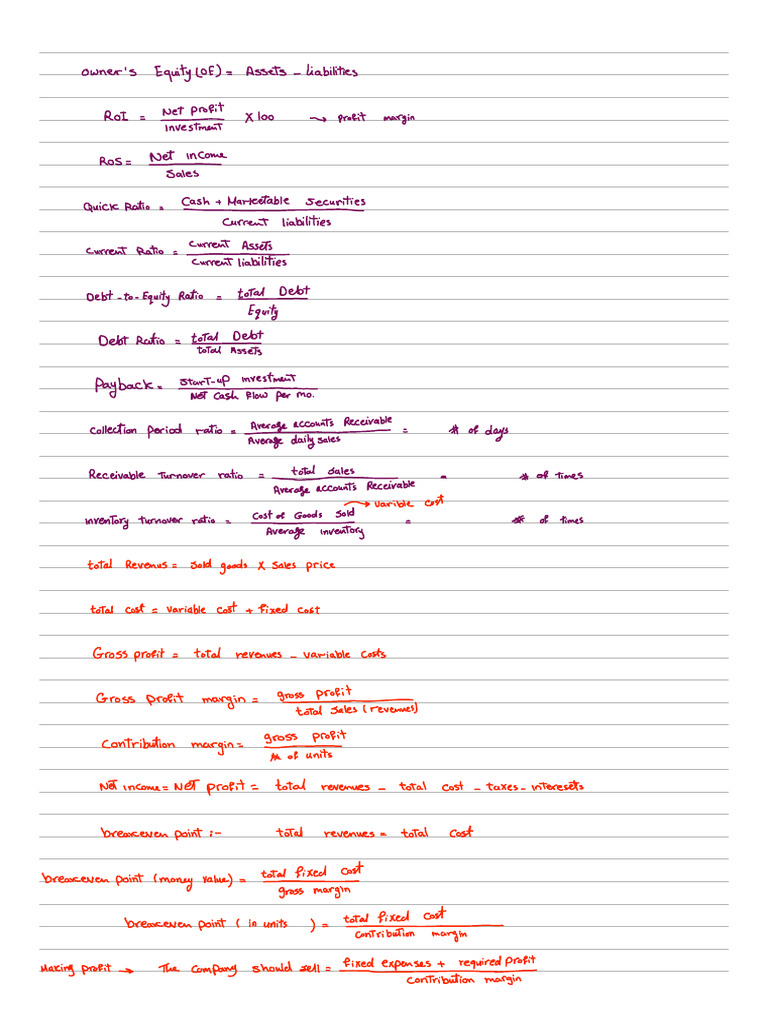 owner's Equity (OE) = Assets - liabilities
RoI = Net profit / investment X 100 → profit margin
RoS = Net income / Sales
Quick Ratio = Cash + Marketable securities / Current liabilities
Current Ratio = Current Assets / Current liabilities
Debt-to-Equity Ratio = total Debt / Equity
Debt Ratio = total Debt / total Assets
Payback = start-up investment / Net Cash flow per mo.
collection period ratio = Average accounts Receivable / Average daily sales = # of days
Receivable turnover ratio = total sales / Average accounts Receivable = # of times
→ varible cost
inventory turnover ratio = Cost of Goods sold / Average inventory = # of times
total Revenus = sold goods X sales price
total cost = variable cost + fixed cost
Gross profit = total revenues - variable costs
Gross profit margin = gross profit / total sales (revenues)
Contribution margin = gross profit / # of units
Net income = Net profit = total revenues - total cost - taxes - interesets
breakeven point :- total revenues = total cost
breakeven point (money value) = total fixed cost / gross margin
breakeven point ( in units ) = total fixed cost / contribution margin
Making profit → The company should sell = fixed expenses + required profit / contribution margin